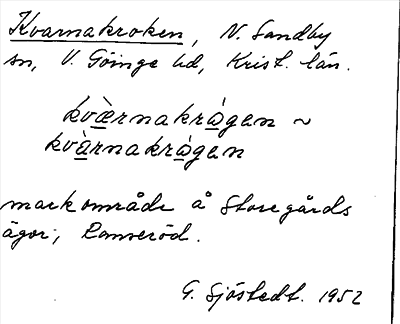 Kvarnakroken, N. Sandby
sn, V. Göinge hd, Krist. län.
kvæ̀rnakrǻgen ~
kvàrnakrǻgen
markområde å Storegårds
ägor, Ranseröd.
G. Sjöstedt. 1952